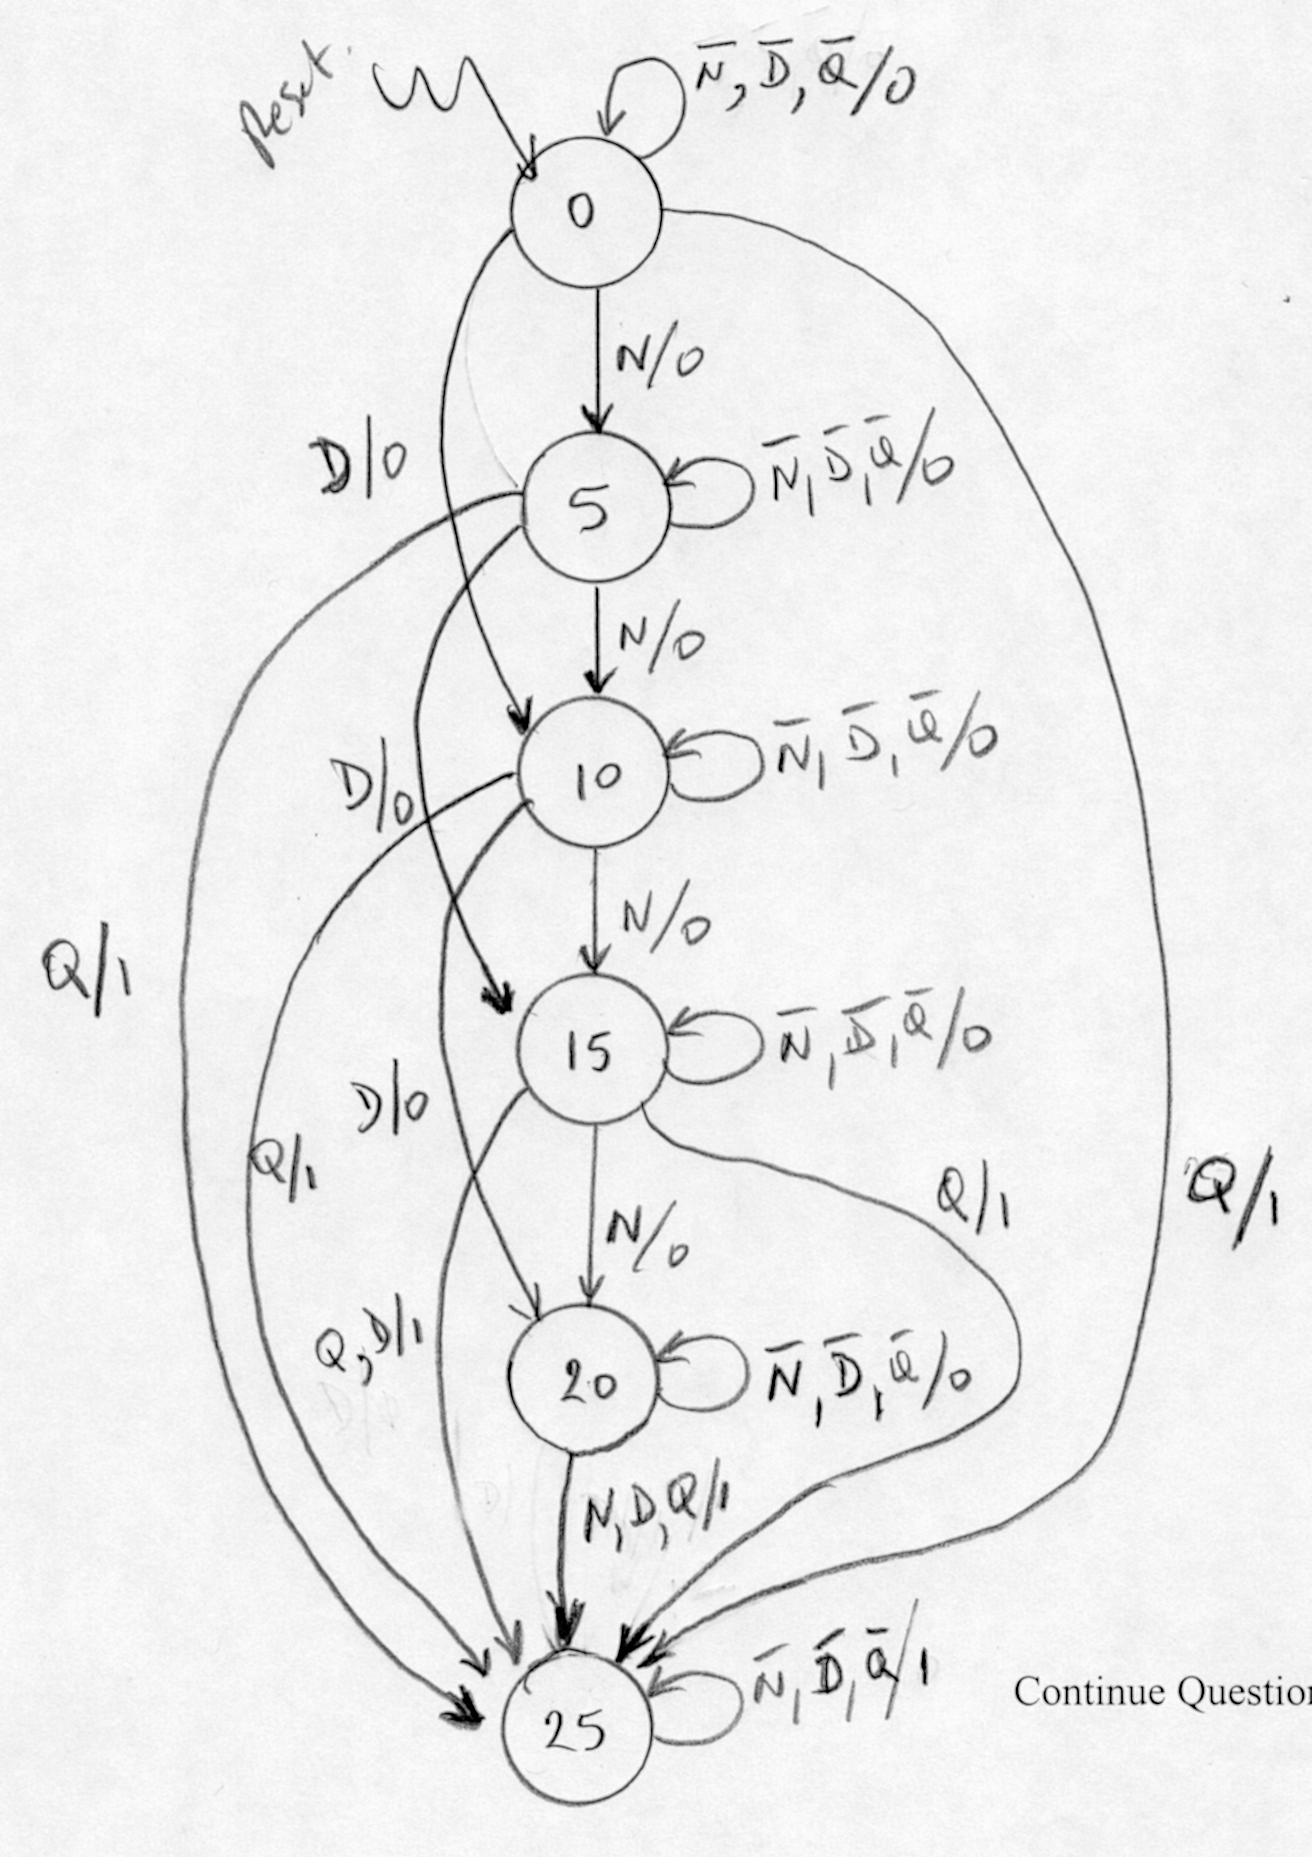 Reset.
N̅, D̅, Q̅/0
0
N/0
D/0
5
N̅, D̅, Q̅/0
N/0
10
N̅, D̅, Q̅/0
D/0
N/0
Q/1
15
N̅, D̅, Q̅/0
D/0
Q/1
Q/1
Q/1
N/0
Q, D/1
20
N̅, D̅, Q̅/0
N, D, Q/1
25
N̅, D̅, Q̅/1
Continue Question